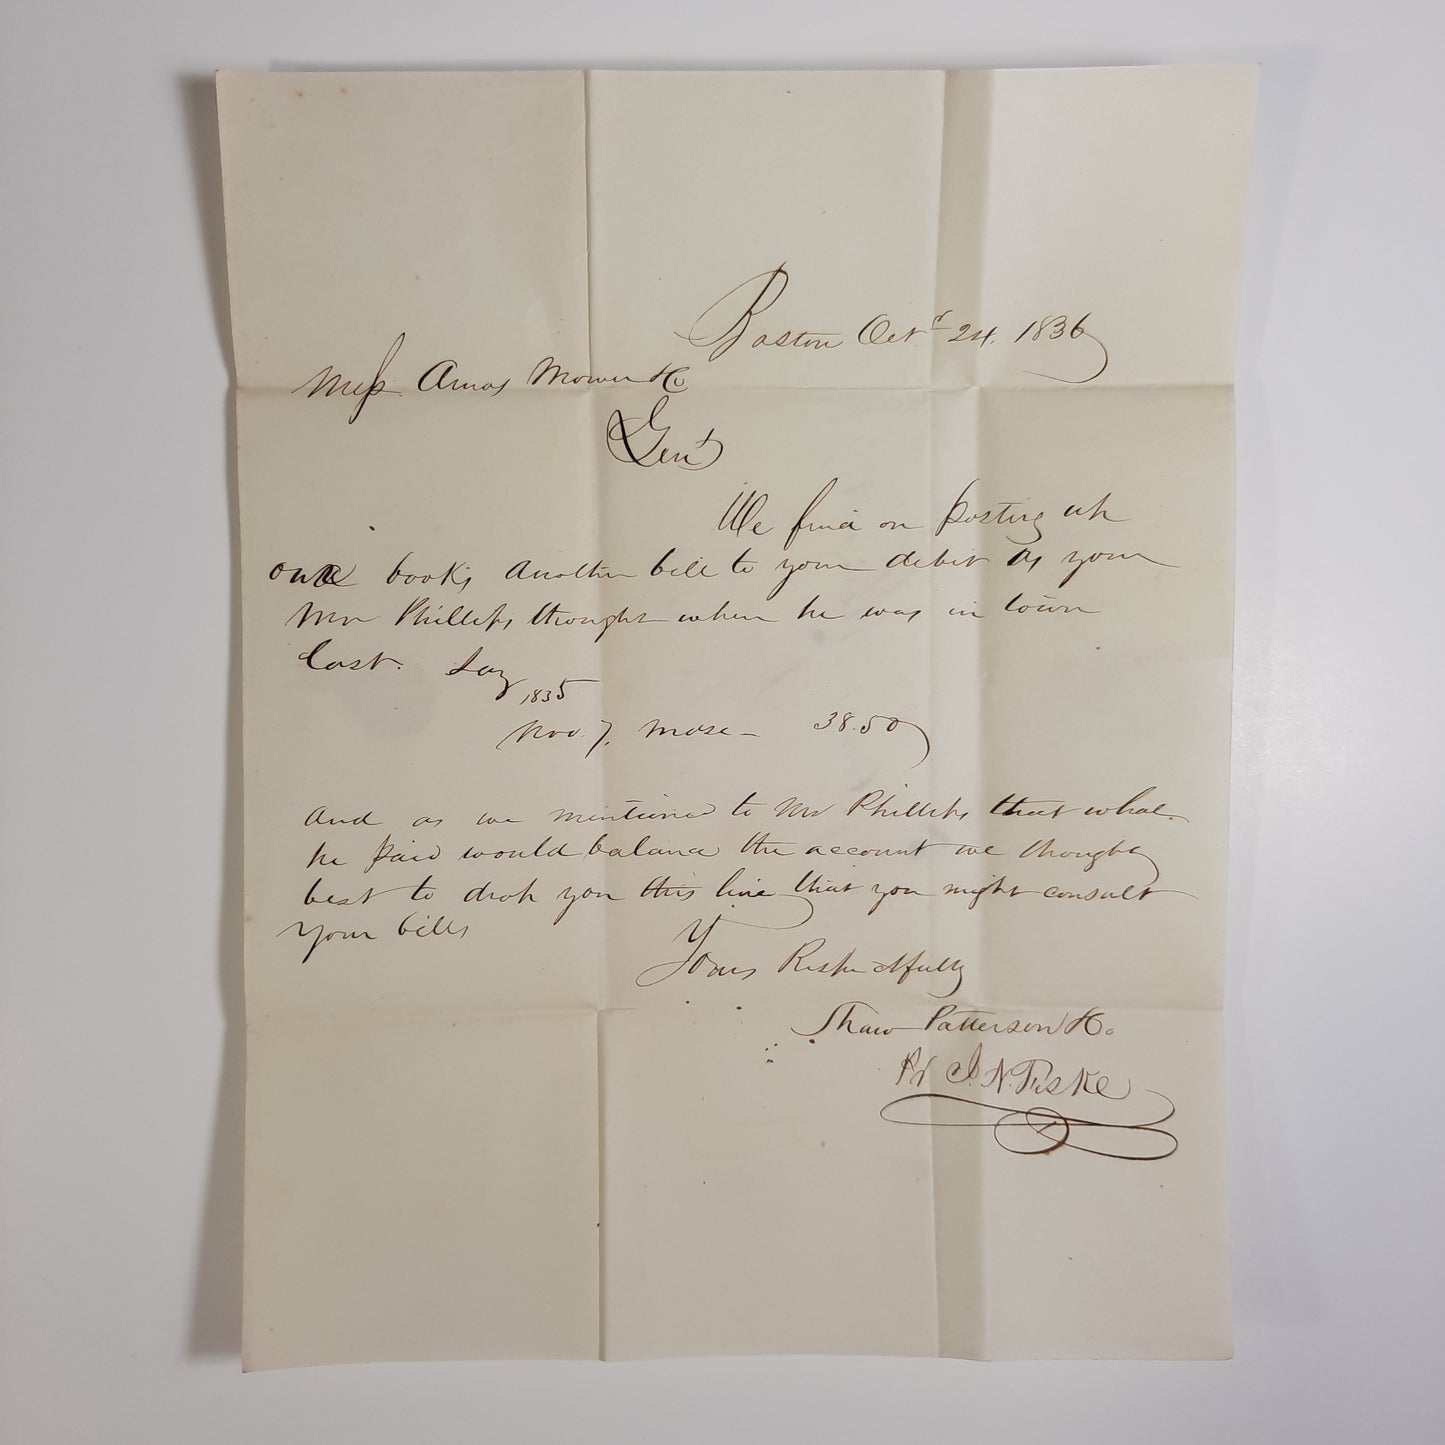 Boston Octr 24. 1836
Mess. Amos Mower & Co
Gent
We find on posting up
our books another bill to your debit as your
Mr Phillips thought when he was in town
last. Say
1835
Nov. 7. Mdse - 38.50
And as we mentioned to Mr Phillips that what
he paid would balance the account we thought
best to drop you this line that you might consult
your bills
Yours Respectfully
Shaw Patterson & Co.
Pr J. N. Fiske